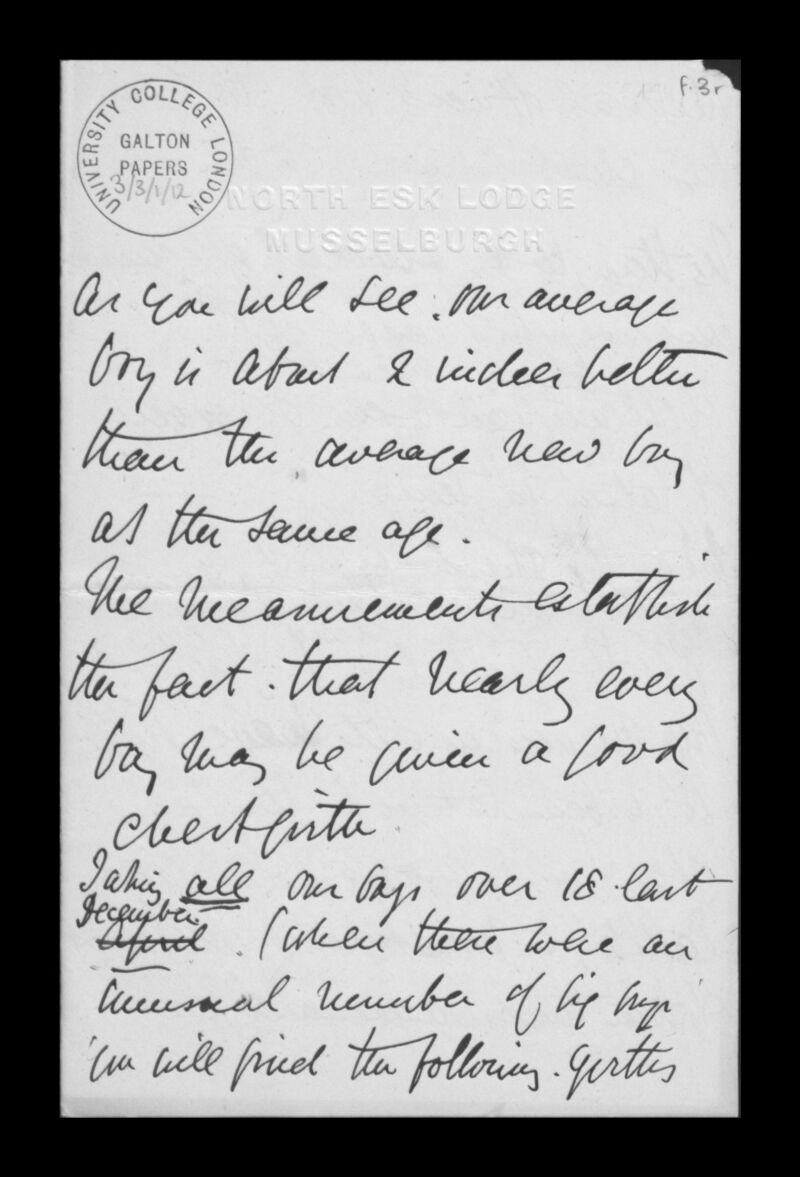 f. 3r
UNIVERSITY COLLEGE LONDON
GALTON
PAPERS
3/3/1/12
NORTH ESK LODGE
MUSSELBURGH
As you will see. our average
boy is about 2 inches better
than the average new boy
at the same age.
The measurements establish
the fact. that nearly every
boy may be given a good
chest girth.
Taking all our boys over 18. last
December.
April. (when there were an
unusual number of big boys
you will find the following. girths